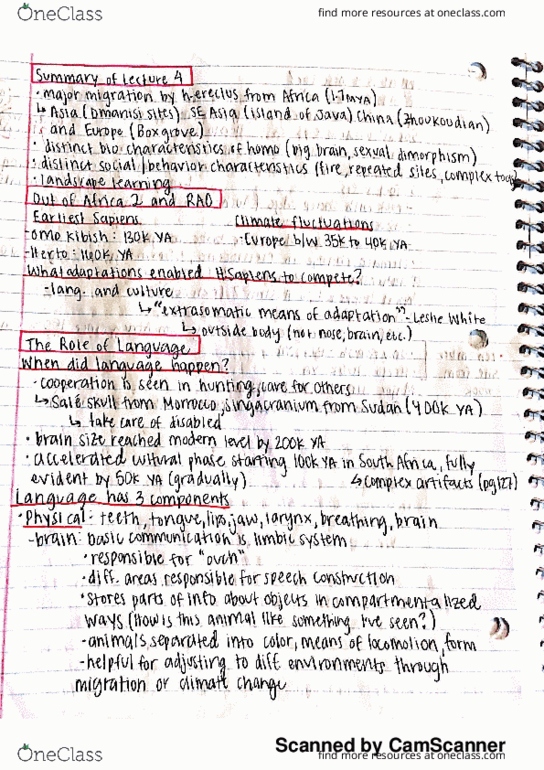 OneClass
find more resources at oneclass.com
Summary of Lecture 4
· major migration by h.erectus from Africa (1.7mYA)
↳ Asia (Dmanisi sites) SE Asia (island of Java) China (Zhoukoudian)
and Europe (Boxgrove)
· distinct bio characteristics of homo (big brain, sexual dimorphism)
· distinct social/behavior characteristics (fire, repeated sites, complex tools)
· landscape learning
Out of Africa 2 and RAO
Earliest Sapiens Climate fluctuations
- Omo Kibish: 130K YA · Europe b/w 35k to 40k YA
- Herto: 160K YA
What adaptations enabled H.Sapiens to compete?
- lang. and culture
↳ "extrasomatic means of adaptation" - Leslie White
↳ outside body (not nose, brain, etc.)
The Role of Language
When did language happen?
· cooperation is seen in hunting, care for others
↳ Salé skull from Morrocco, singa cranium from Sudan (400K YA)
↳ take care of disabled
· brain size reached modern level by 200K YA
· accelerated cultural phase starting 100K YA in South Africa, fully
evident by 50K YA (gradually) ↳ complex artifacts (pg171)
Language has 3 components
· Physical - teeth, tongue, lips, jaw, larynx, breathing, brain
- brain: basic communication is limbic system
· responsible for "ouch"
· diff. areas responsible for speech construction
· stores parts of info about objects in compartmentalized
ways (How is this animal like something I've seen?)
- animals separated into color, means of locomotion, form
- helpful for adjusting to diff environments through
migration or climate change
Scanned by CamScanner
OneClass
find more resources at oneclass.com